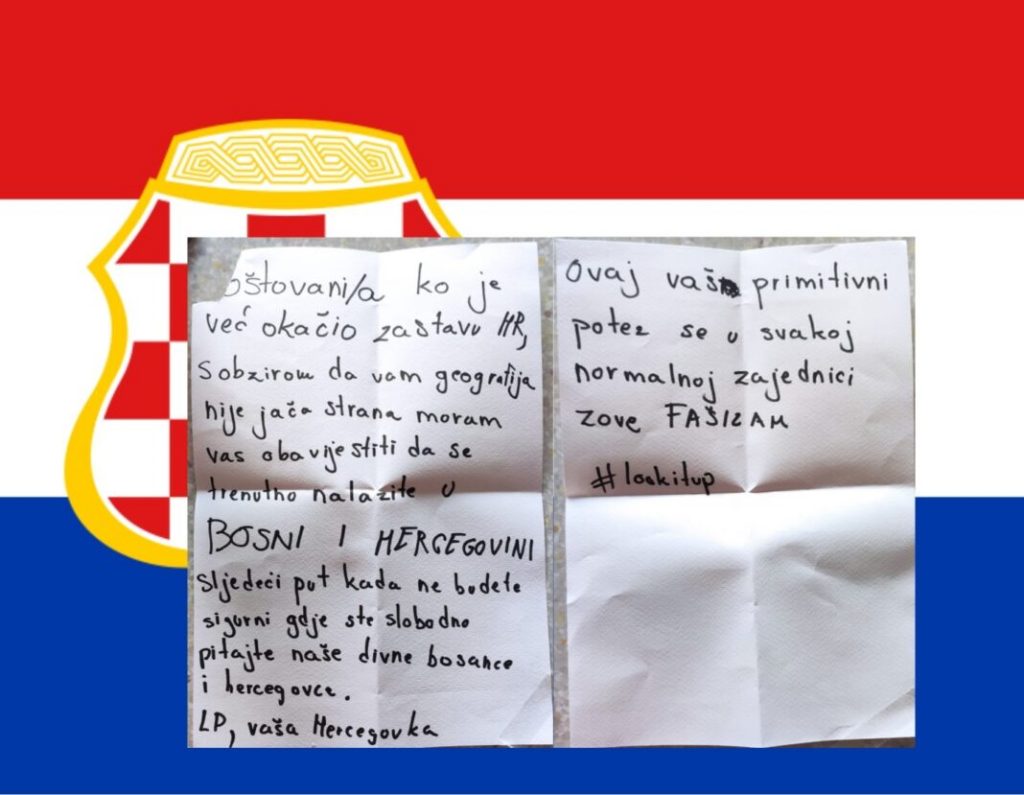 oštovani/a ko je
već okačio zastavu HR,
sobzirom da vam geografija
nije jača strana moram
vas obavijestiti da se
trenutno nalazite u
BOSNI I HERCEGOVINI
sljedeći put kada ne budete
sigurni gdje ste slobodno
pitajte naše divne bosance
i hercegovce.
LP, vaša Hercegovka
Ovaj vaš primitivni
potez se u svakoj
normalnoj zajednici
zove FAŠIZAM
#lookitup